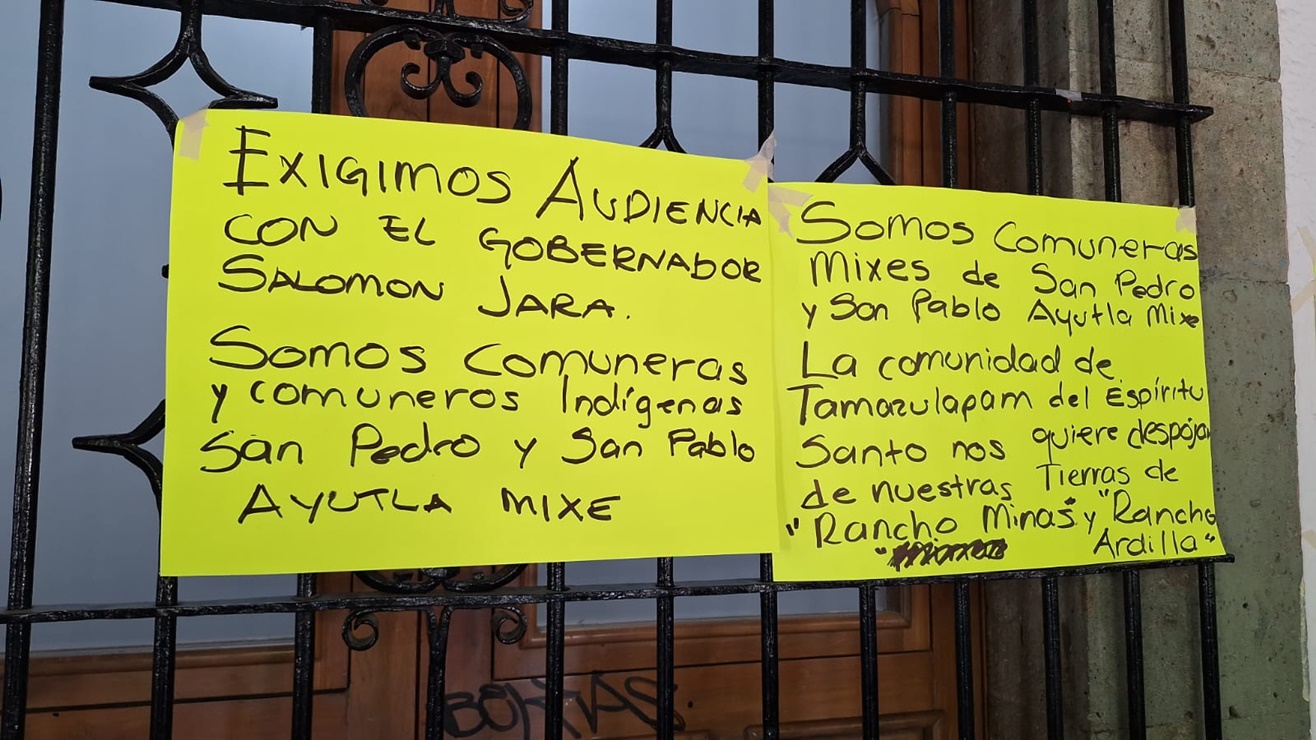 EXIGIMOS AUDIENCIA
CON EL GOBERNADOR
SALOMON JARA.
Somos comuneras
y comuneros Indígenas
San Pedro y San Pablo
AYUTLA MIXE
Somos Comuneras
Mixes de San Pedro
y San Pablo Ayutla Mixe
La comunidad de
Tamazulapam del Espíritu
Santo nos quiere despojar
de nuestras Tierras de
"Rancho Minas" y "Rancho
Ardilla"